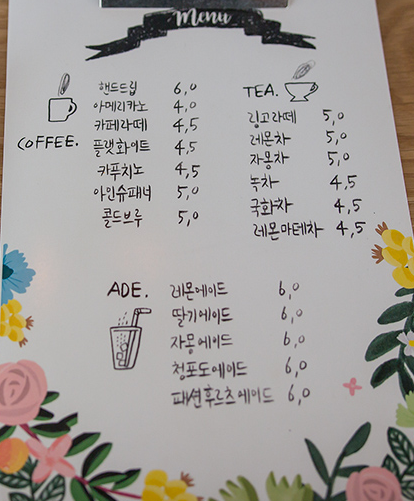 Menu
COFFEE.
핸드드립 6,0
아메리카노 4,0
카페라떼 4,5
플랫화이트 4,5
카푸치노 4,5
아인슈패너 5,0
콜드브루 5,0
TEA.
링고라떼 5,0
레몬차 5,0
자몽차 5,0
녹차 4,5
국화차 4,5
레몬마테차 4,5
ADE.
레몬에이드 6,0
딸기에이드 6,0
자몽에이드 6,0
청포도에이드 6,0
패션후르츠에이드 6,0